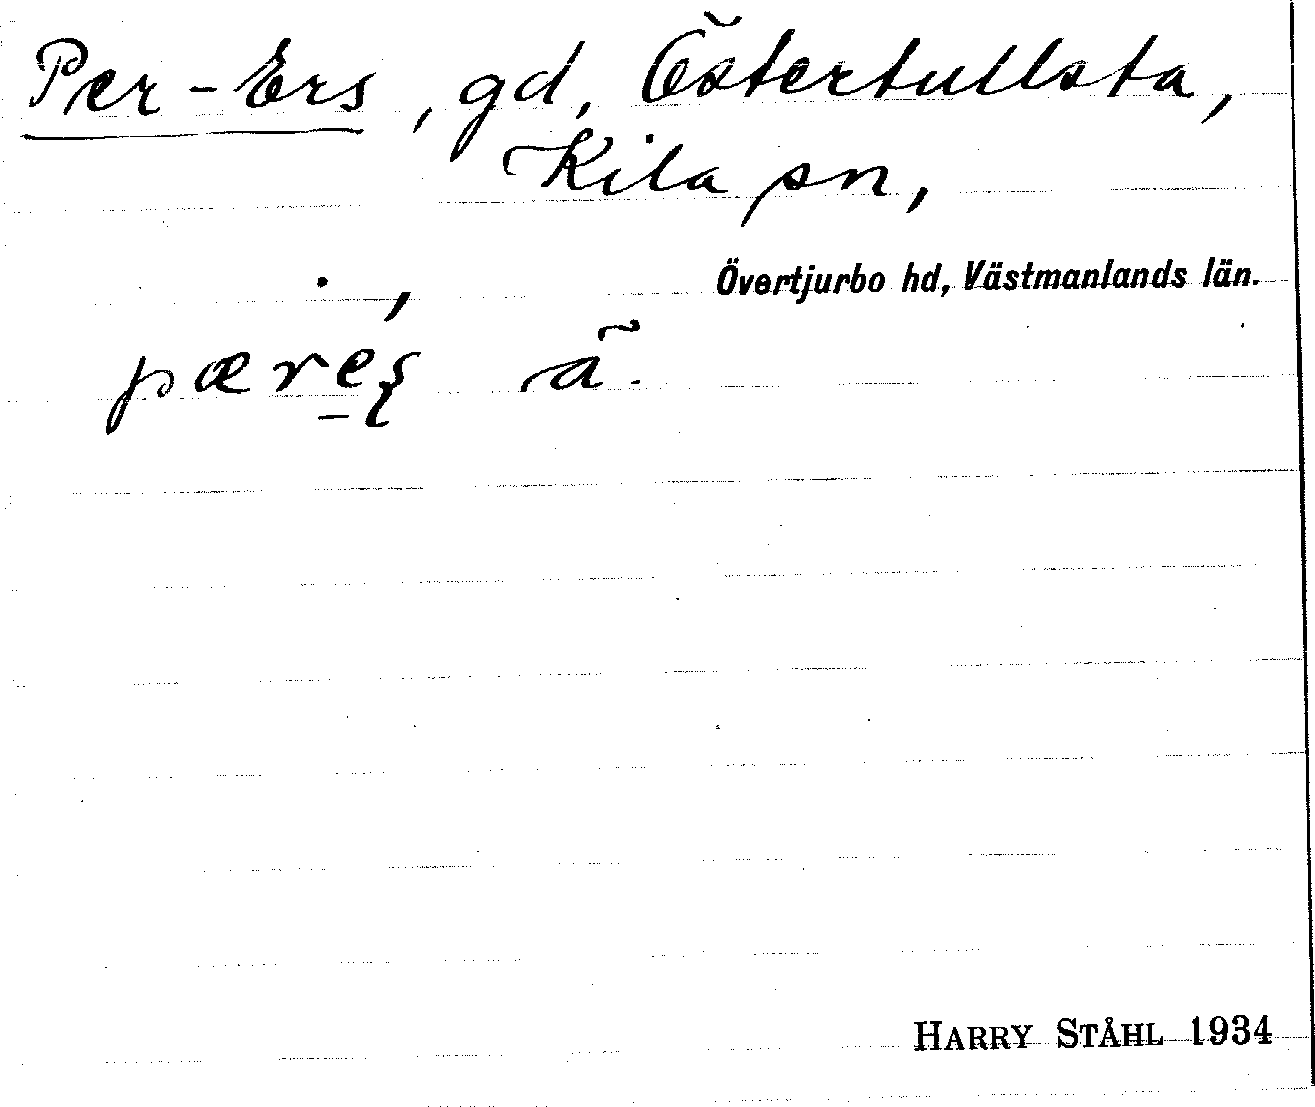 Per-Ers, gd, Östertullsta,
Kila sn,
Övertjurbo hd, Västmanlands län.
HARRY STÅHL 1934